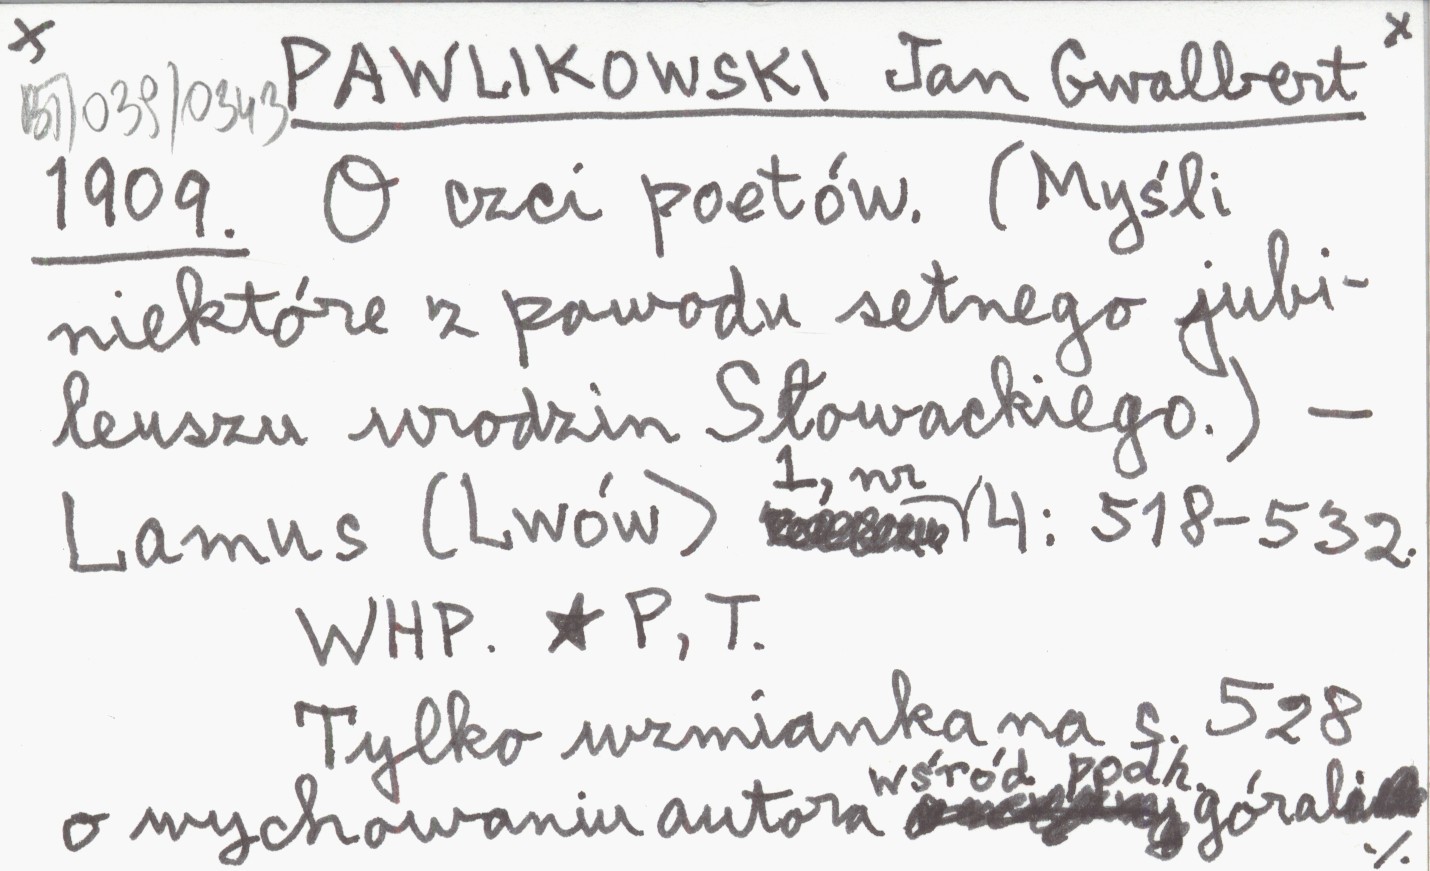 x PAWLIKOWSKI Jan Gwalbert x
/039/0343
1909. O czci poetów. (Myśli
niektóre z powodu setnego jubi-
leuszu urodzin Słowackiego.) —
Lamus (Lwów) 1, nr 4: 518-532.
WHP. ★ P, T.
Tylko wzmianka na s. 528
o wychowaniu autora wśród podh. górali
./.